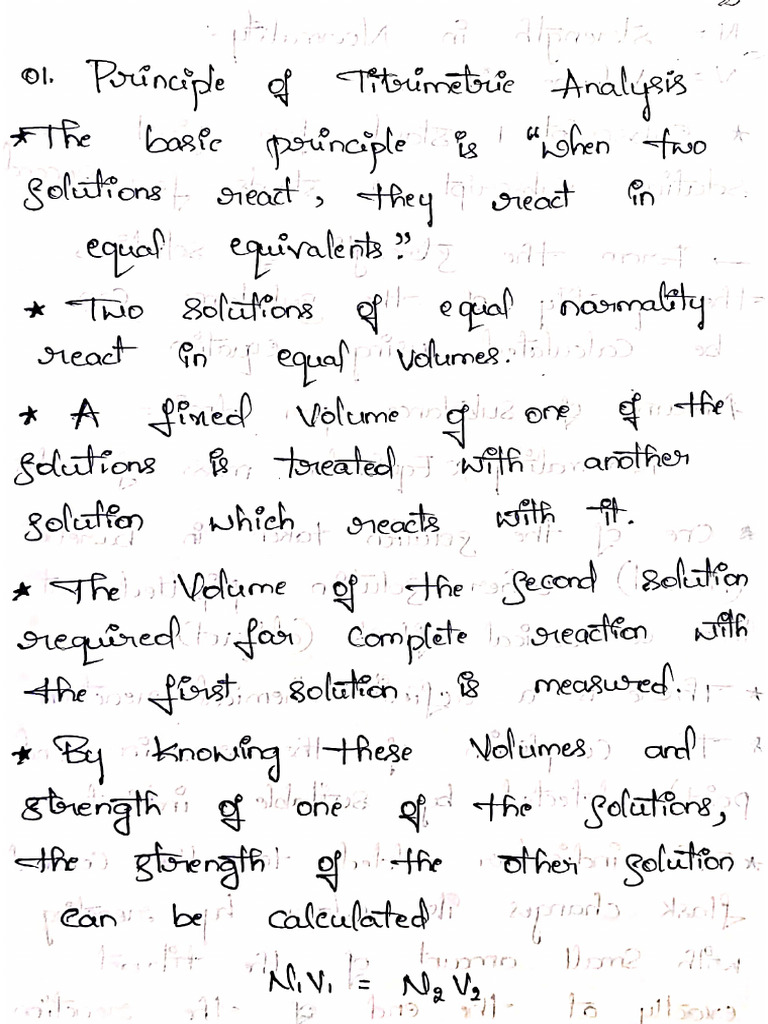 01. Principle of Titrimetric Analysis
* The basic principle is "when two
solutions react, they react in
equal equivalents".
* Two solutions of equal normality
react in equal volumes.
* A fixed volume of one of the
solutions is treated with another
solution which reacts with it.
* The volume of the second solution
required for complete reaction with
the first solution is measured.
* By knowing these volumes and
strength of one of the solutions,
the strength of the other solution
can be calculated
N₁V₁ = N₂V₂